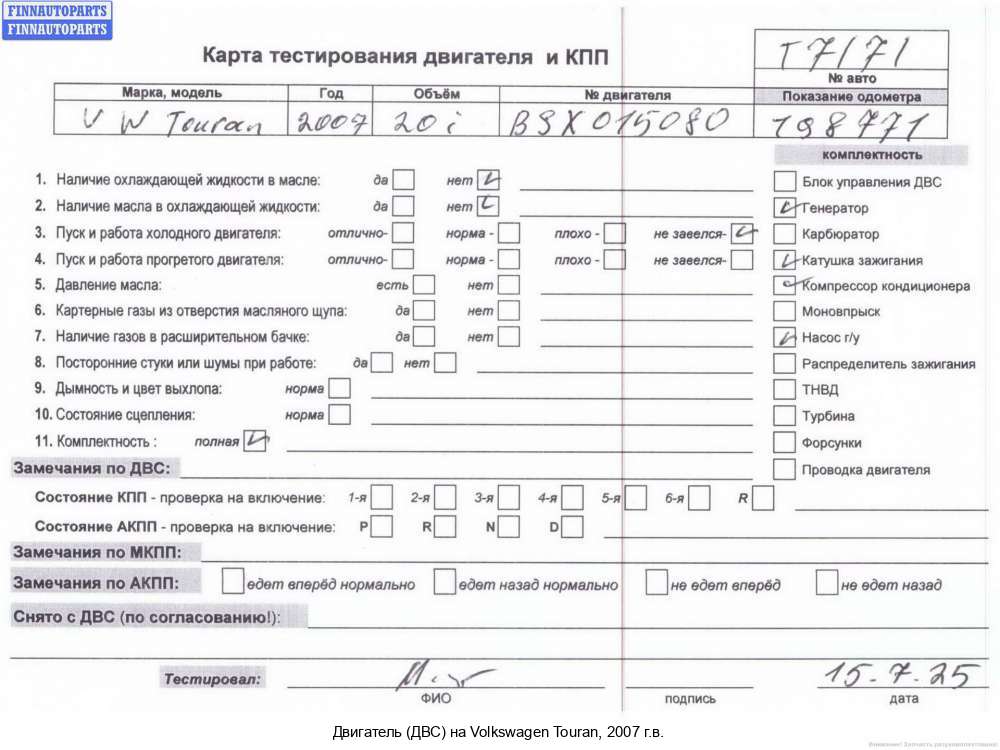 FINNAUTOPARTS
FINNAUTOPARTS
Карта тестирования двигателя и КПП
T7171
№ авто
Марка, модель Год Объём № двигателя Показание одометра
VW Touran 2007 20i BSX015080 198771
комплектность
1. Наличие охлаждающей жидкости в масле: да нет Блок управления ДВС
2. Наличие масла в охлаждающей жидкости: да нет Генератор
3. Пуск и работа холодного двигателя: отлично- норма - плохо - не завелся- Карбюратор
4. Пуск и работа прогретого двигателя: отлично- норма - плохо - не завелся- Катушка зажигания
5. Давление масла: есть нет Компрессор кондиционера
6. Картерные газы из отверстия масляного щупа: да нет Моновпрыск
7. Наличие газов в расширительном бачке: да нет Насос г/у
8. Посторонние стуки или шумы при работе: да нет Распределитель зажигания
9. Дымность и цвет выхлопа: норма ТНВД
10. Состояние сцепления: норма Турбина
11. Комплектность : полная Форсунки
Замечания по ДВС: Проводка двигателя
Состояние КПП - проверка на включение: 1-я 2-я 3-я 4-я 5-я 6-я R
Состояние АКПП - проверка на включение: P R N D
Замечания по МКПП:
Замечания по АКПП: едет вперёд нормально едет назад нормально не едет вперёд не едет назад
Снято с ДВС (по согласованию!):
Тестировал: 15.7.25
ФИО подпись дата
Двигатель (ДВС) на Volkswagen Touran, 2007 г.в.